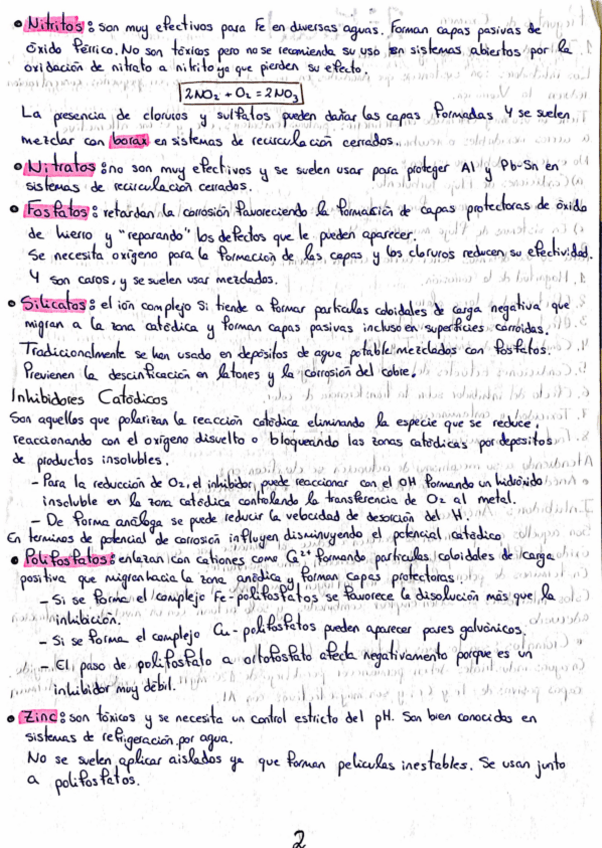 • Nitritos: son muy efectivos para Fe en diversas aguas. Forman capas pasivas de
óxido férrico. No son tóxicos pero no se recomienda su uso en sistemas abiertos por la
oxidación de nitrato a nitrito ya que pierden su efecto.
2NO2 + O2 = 2NO3
La presencia de cloruros y sulfatos pueden dañar las capas formadas y se suelen
mezclar con borax en sistemas de recirculación cerrados.
• Nitratos: no son muy efectivos y se suelen usar para proteger Al y Pb-Sn en
sistemas de recirculación cerrados.
• Fosfatos: retardan la corrosión favoreciendo la formación de capas protectoras de óxido
de hierro y "reparando" los defectos que le pueden aparecer.
Se necesita oxígeno para la formación de las capas y los cloruros reducen su efectividad.
Y son caros, y se suelen usar mezclados.
• Silicatos: el ión complejo Si tiende a formar partículas coloidales de carga negativa que
migran a la zona catódica y forman capas pasivas incluso en superficies corroídas.
Tradicionalmente se han usado en depósitos de agua potable mezclados con fosfatos.
Previenen la descinficación en latones y la corrosión del cobre.
Inhibidores Catódicos
Son aquellos que polarizan la reacción catódica eliminando la especie que se reduce,
reaccionando con el oxígeno disuelto o bloqueando las zonas catódicas por depósitos
de productos insolubles.
- Para la reducción de O2, el inhibidor puede reaccionar con el OH formando un hidróxido
insoluble en la zona catódica controlando la transferencia de O2 al metal.
- De forma análoga se puede reducir la velocidad de desorción del H.
En términos de potencial de corrosión influyen disminuyendo el potencial catódico
• Polifosfatos: enlazan con cationes como Ca2+ formando partículas coloidales de carga
positiva que migran hacia la zona anódica y forman capas protectoras
- Si se forma el complejo Fe-polifosfatos se favorece la disolución más que la
inhibición.
- Si se forma el complejo Cu-polifosfatos pueden aparecer pares galvánicos.
- El paso de polifosfato a ortofosfato afecta negativamente porque es un
inhibidor muy débil.
• Zinc: son tóxicos y se necesita un control estricto del pH. Son bien conocidos en
sistemas de refrigeración por agua.
No se suelen aplicar aislados ya que forman películas inestables. Se usan junto
a polifosfatos.
2